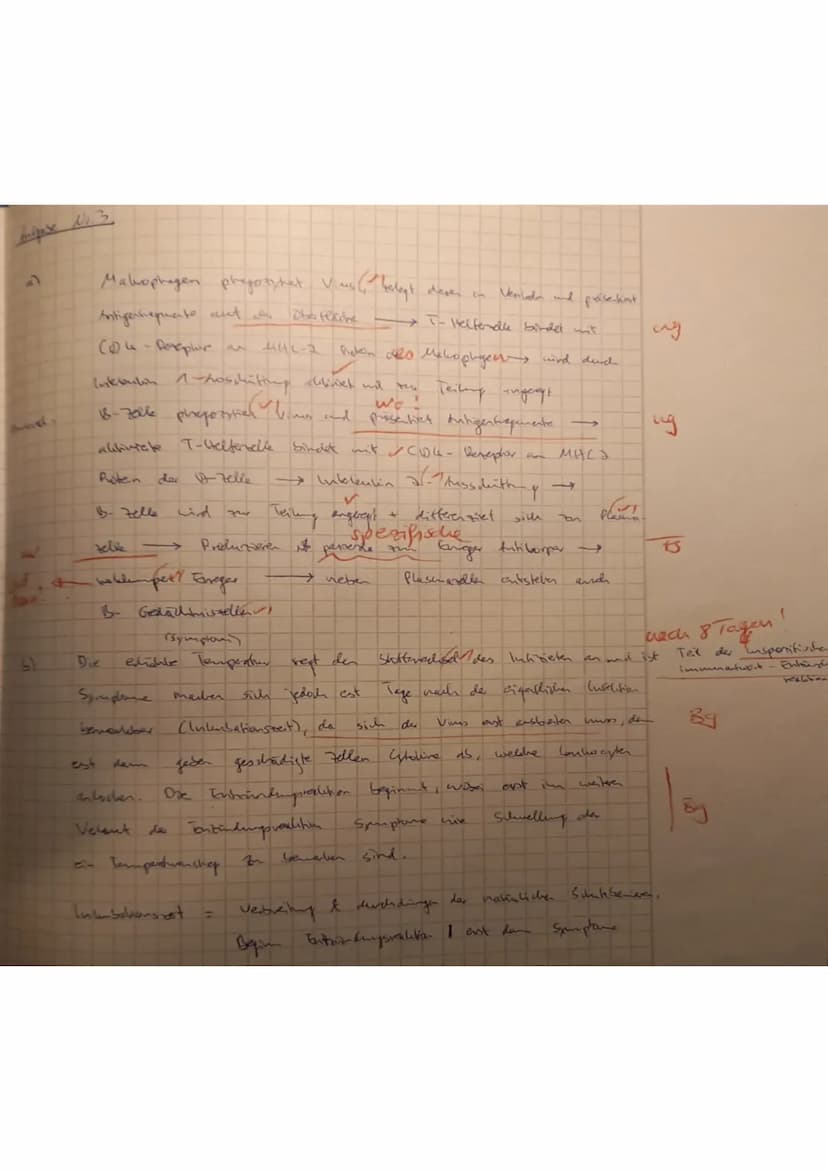 Aufgabe Nr. 3
a) Makrophagen phagozytiert Virus, zerlegt diesen in Verdau und präsentiert
Antigenfragmente auf der Oberfläche → T-Helferzelle bindet mit ug
CD4-Rezeptor an MHC-2 Protein des Makrophagen → wird durch
Interleukin 1-Ausschüttung aktiviert und zur Teilung angeregt
wo!
B-Zelle phagozytiert Virus und präsentiert Antigenfragmente → ug
aktivierte T-Helferzelle bindet mit CD4-Rezeptor an MHC2
Protein der B-Zelle → Interleukin 2-Ausschüttung →
B-Zelle wird zur Teilung angeregt + differenziert sich zu Plasma-
spezifische
zelle → Produzieren passende zum Erreger Antikörper → ts
bekämpfen Erreger → neben Plasmazellen entstehen auch
B-Gedächtniszellen
nach 8 Tagen!
(Symptom)
b) Die erhöhte Temperatur regt den Stoffwechsel des Infizierten an und ist Teil der unspezifische
Immunantwort - Entzünd
reaktion
Symptome machen sich jedoch erst Tage nach der eigentlichen Infektion
bemerkbar (Inkubationszeit), da sich der Virus erst ausbreiten muss, denn Bg
erst dann geben geschädigte Zellen Cytokine ab, welche Leukocyten
anlocken. Die Entzündungsreaktion beginnt, wobei erst im weiteren
Verlauf der Entzündungsreaktion Symptome wie Schwellung oder Bg
ein Temperaturanstieg zu bemerken sind.
Inkubationszeit = Verbreitung & durchdringen der natürlichen Schutzbarrieren,
Beginn Entzündungsreaktion | erst dann Symptome